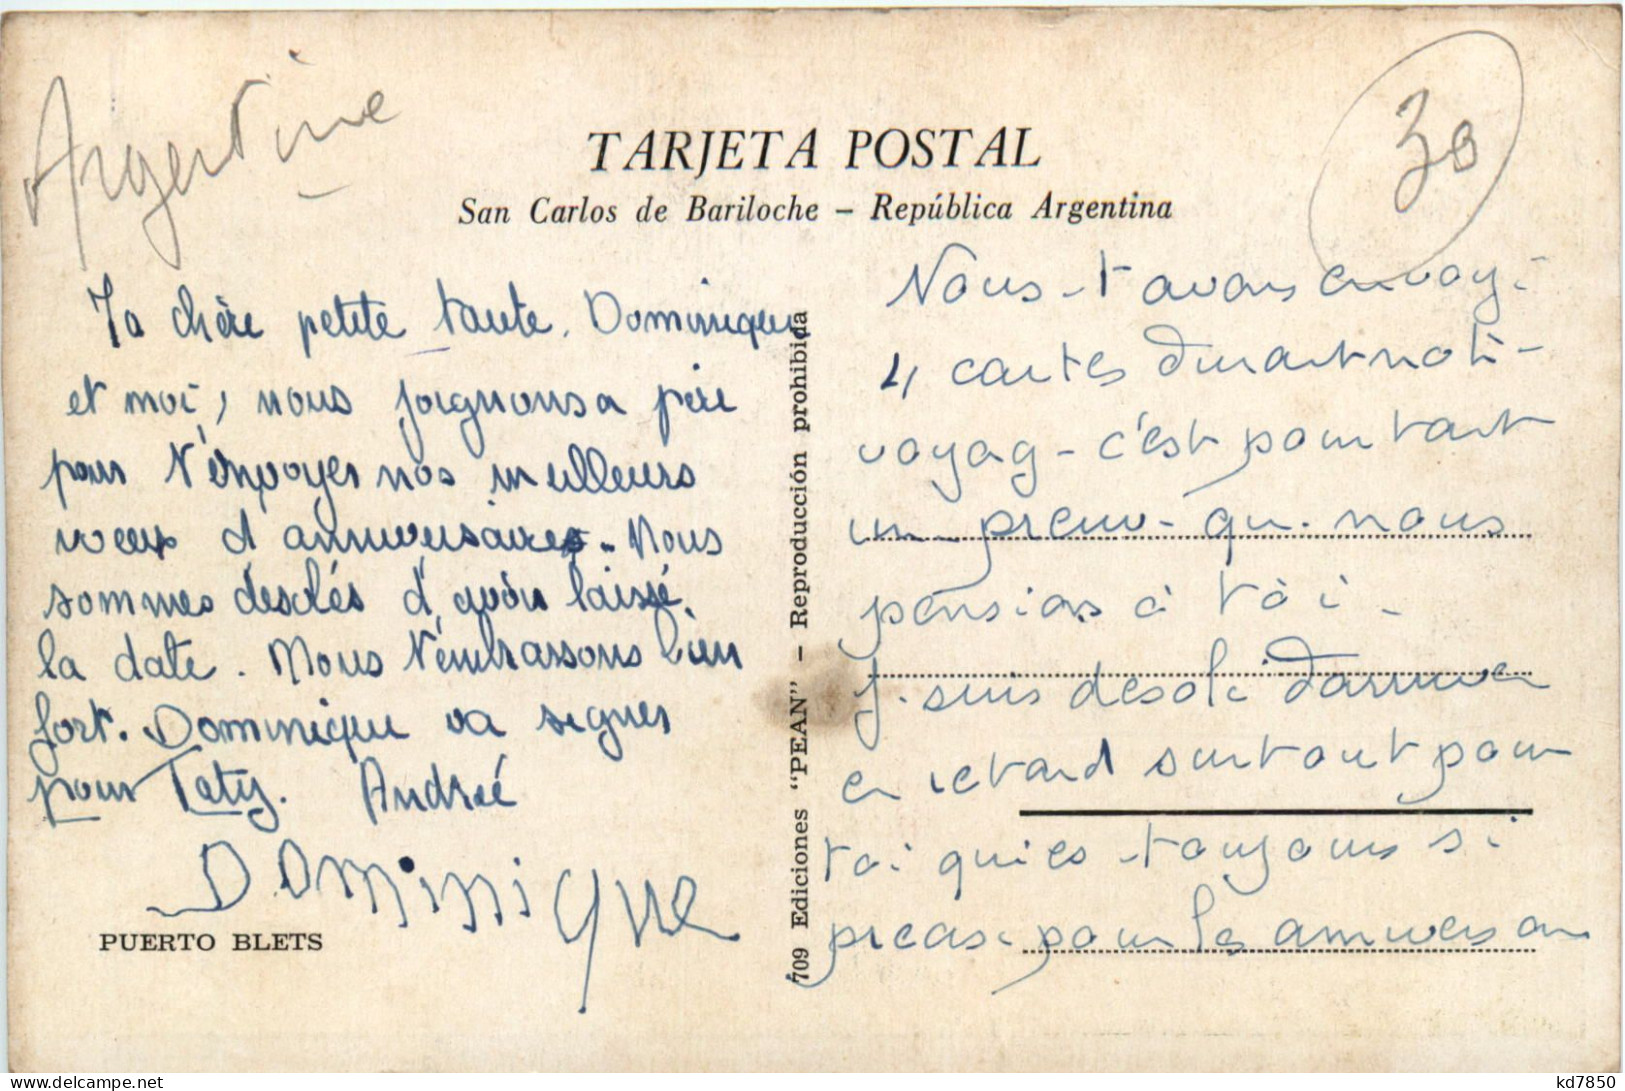 Argentine
30
TARJETA POSTAL
San Carlos de Bariloche – República Argentina
Ma chère petite tante. Dominique
et moi, nous joignons a père
pour t'envoyer nos meilleurs
voeux d'anniversaires. Nous
sommes desolés d'avoir laissé
la date. Nous t'embrassons bien
fort. Dominique va signer
pour Taty. Andrée
DOMINIQUE
PUERTO BLETS
709 Ediciones "PEAN" – Reproducción prohibida
Nous t avons envoy
4 cartes durant not
voyag c'est pourtant
un preuv qu nous
pensions à toi
J suis desolé darriver
en retard surtout pour
toi qui es toujours si
precas pour les anniversair
kd7850